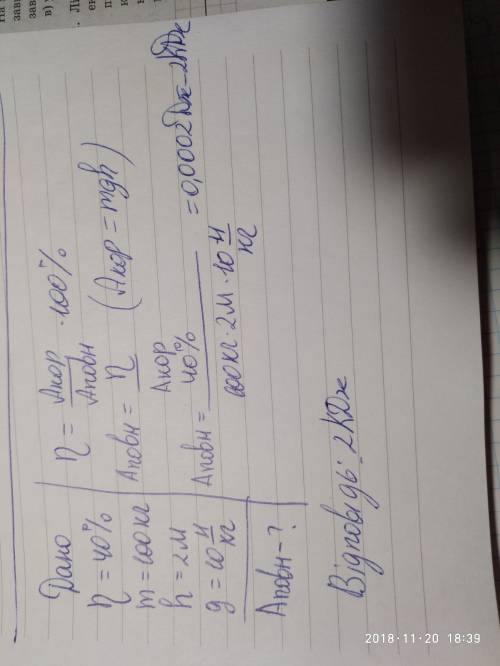 Дано
η = 40%
m = 100кг
h = 2м
g = 10 Н/кг
Aповн - ?
η = Aкор/Aповн · 100%
Aповн = Aкор/η (Aкор = mgh)
Aповн = 40%/100кг · 2м · 10 Н/кг = 0,0002Дж - 2КДж
Відповідь: 2КДж
2018-11-20 18:39